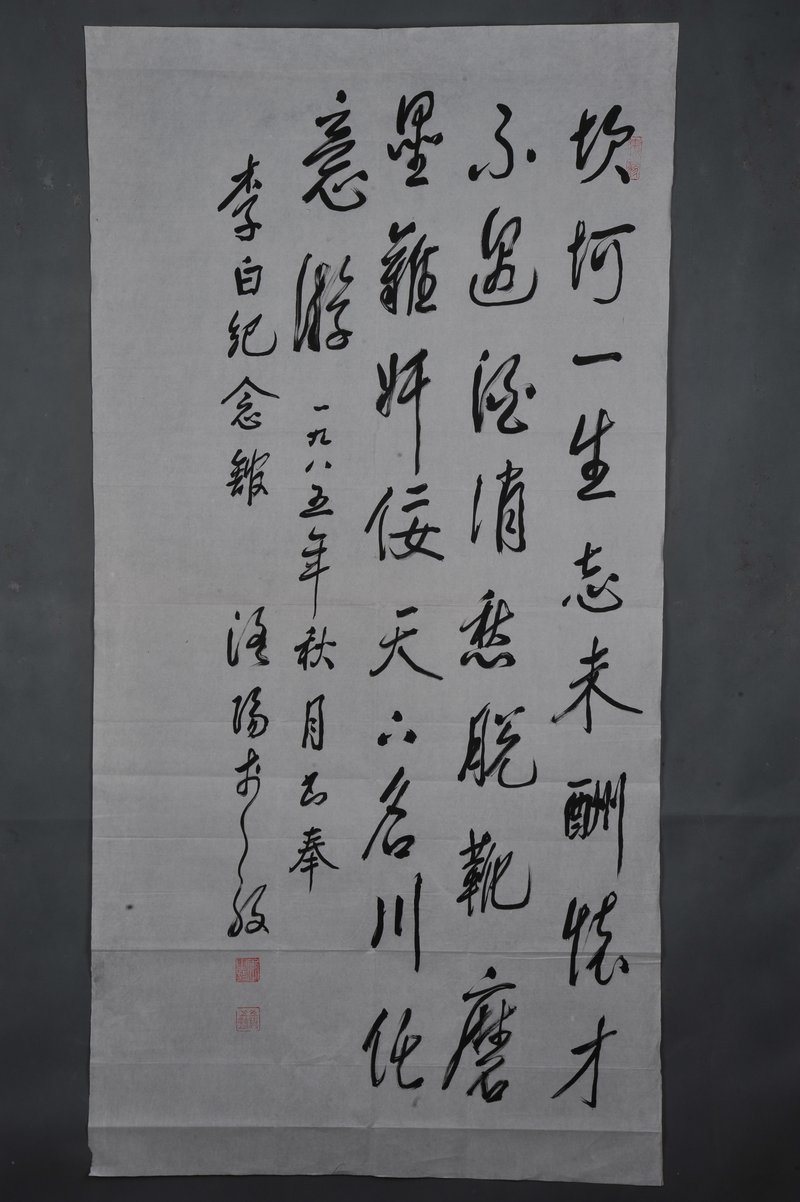 坎坷一生志未酬懷才
不遇酒消愁脱靴磨
墨難奸佞天下名川任
意游 一九八五年秋月书奉
李白纪念館 洛陽